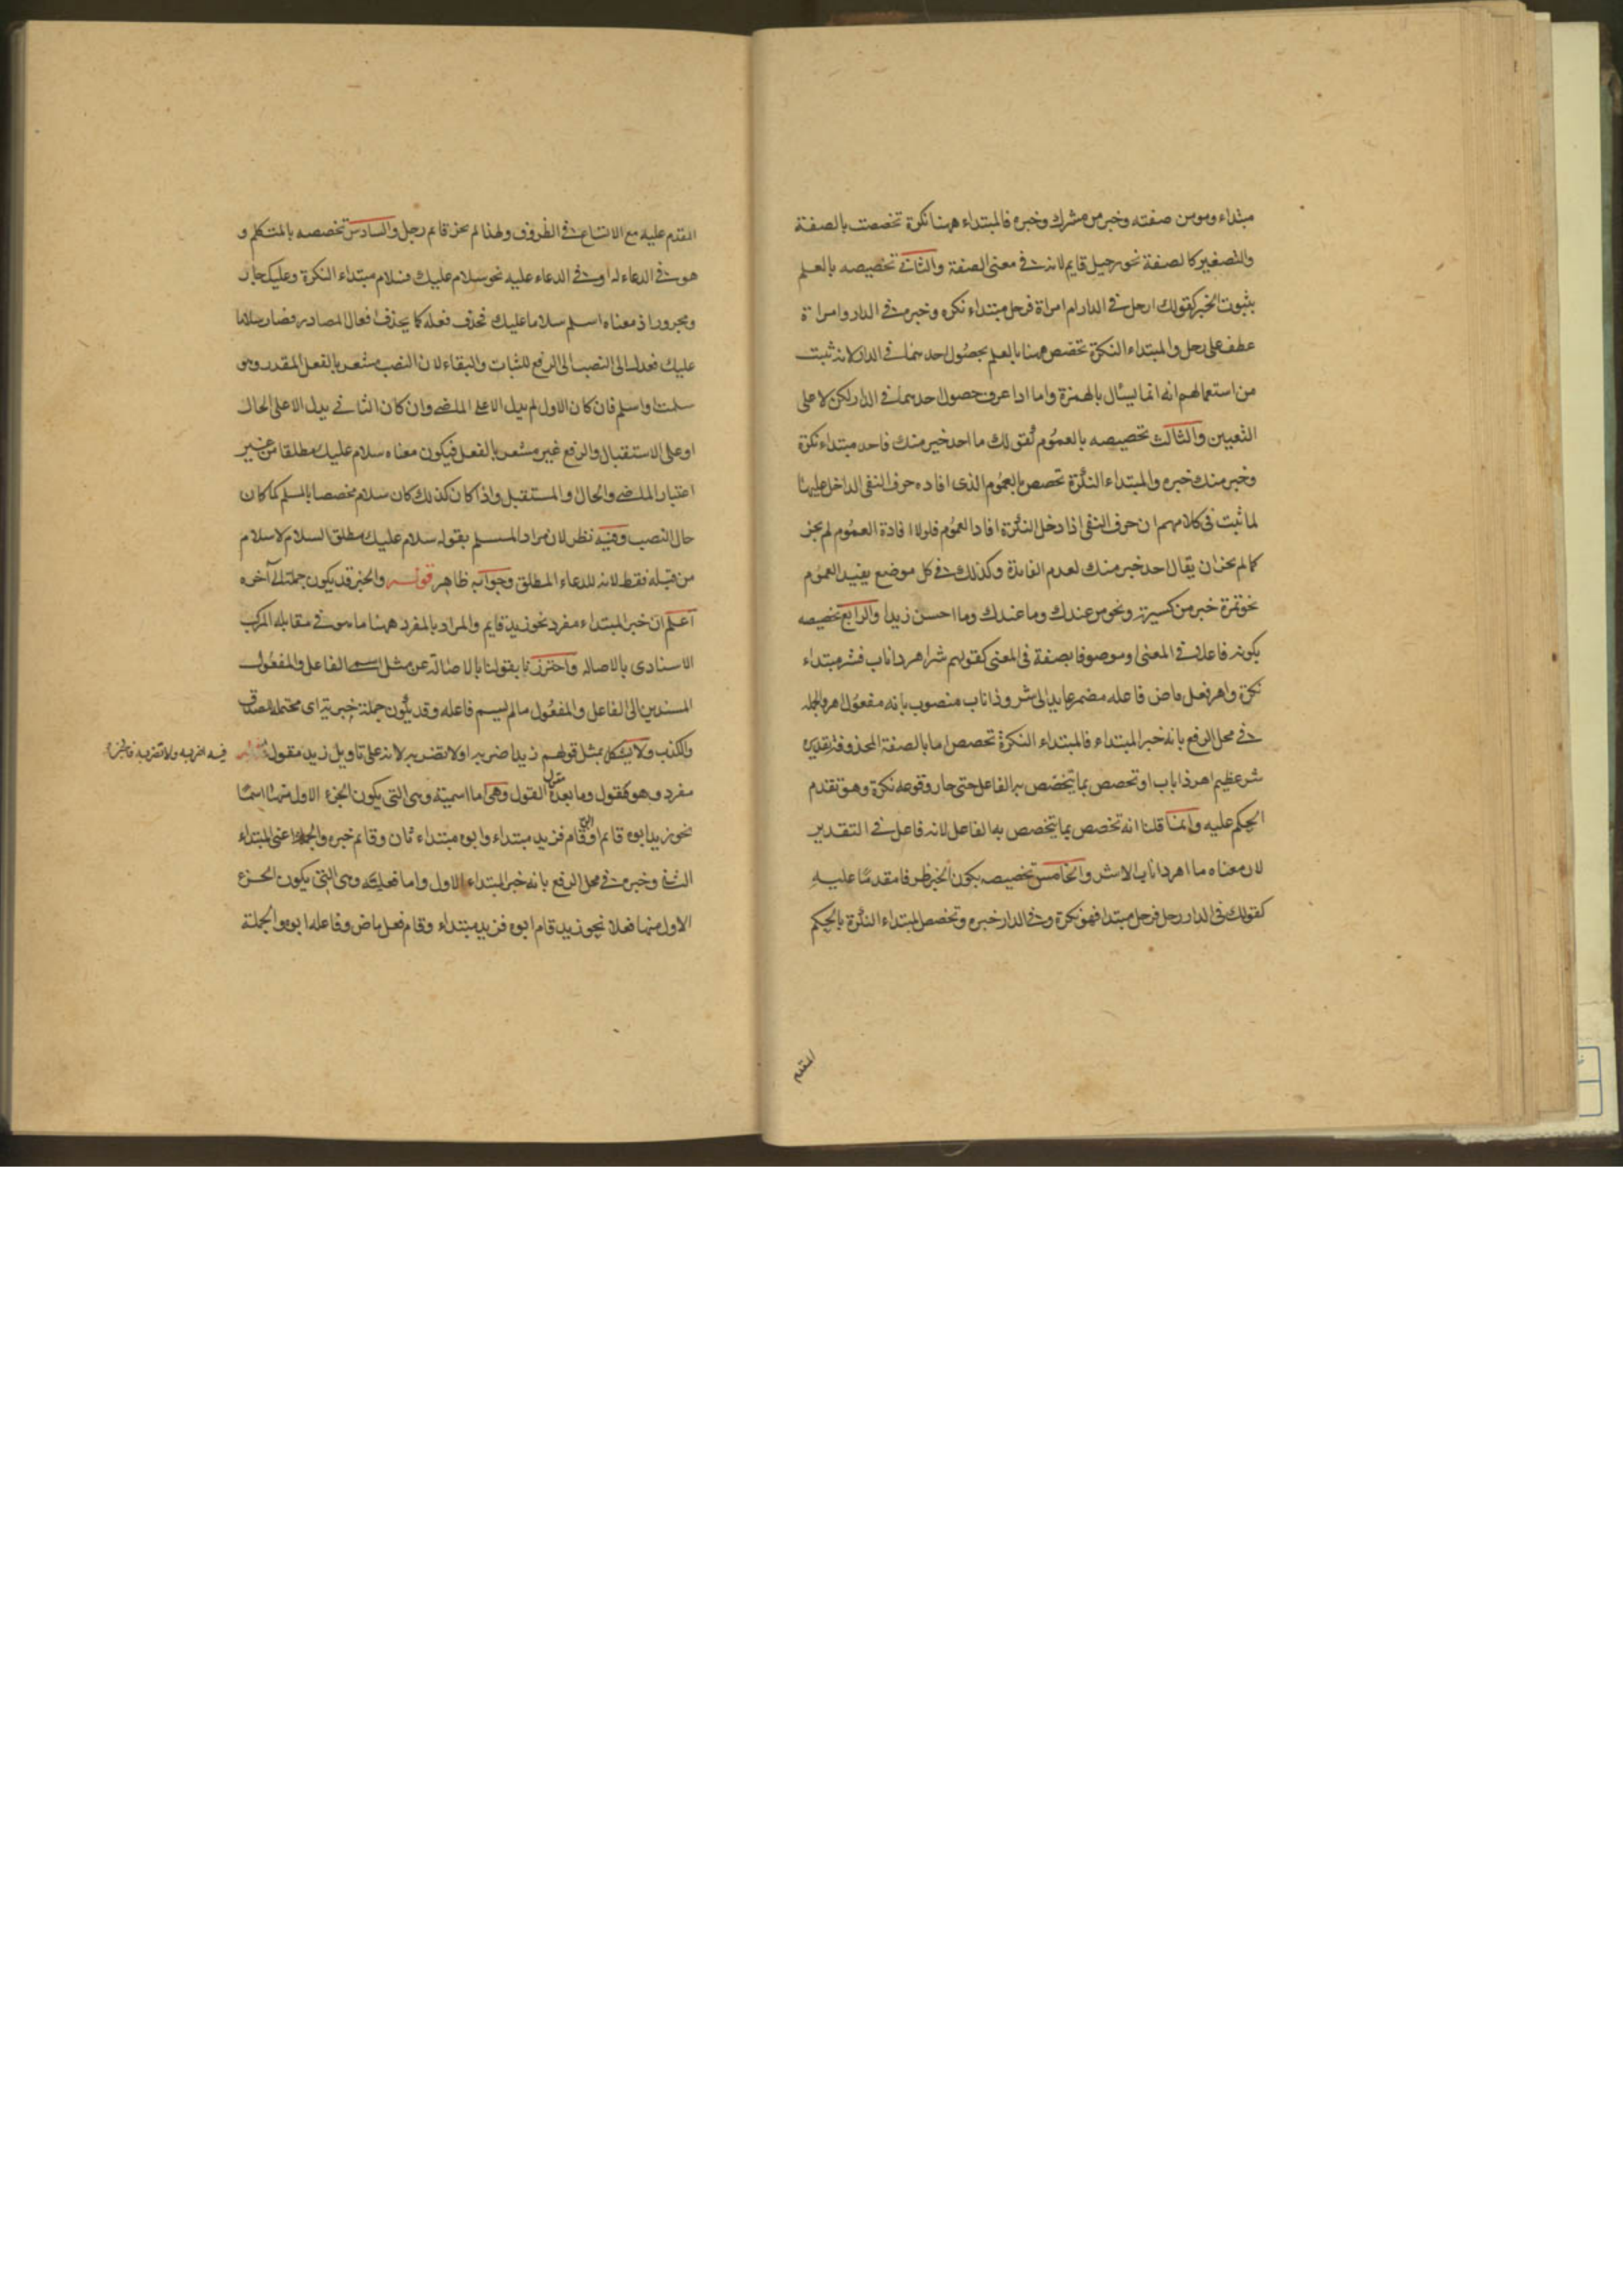 مبتداء ومومن صفته وخير من مشرك وخبره فالمبتداء ههنا نكرة تخصصت بالصفة
والتصغير كالصفة نحو رجيل قايم لانه في معنى الصفة والثاني تخصيصه بالعلم
بثبوت الخبر كقولك ارجل في الدار ام امراة فرجل مبتداء نكره وخبره في الدار وامراة
عطف على رجل والمبتداء النكرة تخصص ههنا بالعلم بحصول احدهما في الدار لانه ثبت
من استعمالهم انه انما يسئال بالهمزة واما اذا عرف حصول احدهما في الدار لكن لا على
التعيين والثالث تخصيصه بالعموم كقولك ما احد خير منك فاحد مبتداء نكرة
وخير منك خبره والمبتداء النكرة تخصص بالعموم الذى افاده حرف النفى الداخل عليها
لما ثبت فى كلامهم ان حرف النفى اذا دخل النكرة افاد العموم فلولا افادة العموم لم يجز
كما لم يجز ان يقال احد خير منك لعدم الفايدة وكذلك في كل موضع يفيد العموم
نحو تمرة خير من ونحو من عندك وما عندك وما احسن زيدا والرابع تخصيصه
بكونه فاعلا في المعنى او موصوفا بصفة فى المعنى كقولهم شر اهر ذا ناب فشر مبتداء
نكرة واهر فعل ماض فاعله مضمر عايد الى شر وذا ناب منصوب بانه مفعول اهر والجملة
في محل الرفع بانه خبر المبتداء فالمبتداء النكرة تخصص اما بالصفة المحذوفة تقديره
شر عظيم اهر ذا ناب او تخصص بما يتخصص به الفاعل حتى جاز وقوعه نكرة وهو تقدم
الحكم عليه وانما قلنا انه تخصص بما يتخصص به الفاعل لانه فاعل في التقدير
لان معناه ما اهر ذا ناب الا شر والخامس تخصيصه بكون الخبر ظرفا مقدما عليه
كقولك فى الدار رجل فرجل مبتدا فهو نكرة وفي الدار خبره وتخصص المبتداء النكرة بالحكم
المقدم
المقدم عليه مع الاتساع في الظروف ولهذا لم يجز قايم رجل والسادس تخصصه بالمتكلم و
هو في الدعاء له او في الدعاء عليه نحو سلام عليك فسلام مبتداء النكرة وعليك جار
ومجرور اذ معناه اسلم سلاما عليك تحذف فعله كما يحذف افعال المصادر فصار سلاما
عليك فعدل الى النصب الى الرفع للثبات والبقاء لان النصب مشعر بالفعل المقدر وهو
سلمت او اسلم فان كان الاول لم يدل الا على الماضى وان كان الثاني يدل الا على الحال
او على الاستقبال والرفع غير مشعر بالفعل فيكون معناه سلام عليك مطلقا من غير
اعتبار الماضى والحال او المستقبل واذا كان كذلك كان سلام مخصصا بالمسلم كما كان
حال النصب وفيه نظر لان مراد المسلم بقوله سلام عليك مطلق السلام لا سلام
من قبله فقط لانه للدعاء المطلق وجوابه ظاهر قوله والخبر قد يكون جملة الى آخره
اعلم ان خبر المبتداء مفرد نحو زيد قايم والمراد بالمفرد ههنا ما هو في مقابلة المركب
الاسنادى بالاصالة واحترزنا بقولنا بالاصالة عن مثل اسم الفاعل والمفعول
المسندين الى الفاعل والمفعول ما لم يسم فاعله وقد يكون جملة خبرية اى محتملة للصدق
والكذب ولا يشكل بمثل قولهم زيد اضربه او لا تضربه لانه على تاويل زيد مقول
فيه اضربه ولا تضربه فالخبر
مفرد وهو كقول وما بعده مقول القول وهى اما اسمية وهى التى يكون الجزء الاول منها اسما
نحو زيد ابوه قايم او قام فزيد مبتداء وابوه مبتداء ثان وقايم خبره والجملة اعنى المبتداء
الثاني وخبره في محل الرفع بانه خبر المبتداء الاول واما فعلية وهى التى يكون الجزء
الاول منها فعلا نحو زيد قام ابوه فزيد مبتداء وقام فعل ماض وفاعله ابوه والجملة